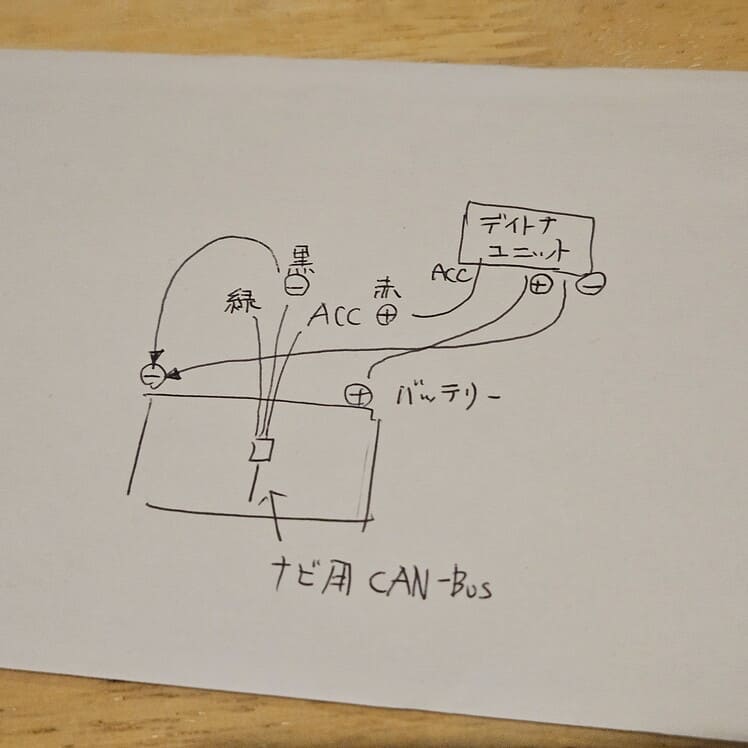 デイトナ
ユニット
ACC
⊕
⊖
黒
⊖
緑
ACC
赤
⊕
⊖
⊕
バッテリー
ナビ用 CAN-Bus